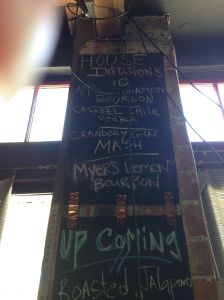 HOUSE
INFUSIONS
10
APPLE CINNAMON
BOURBON
CASABEL CHILE
VODKA
CRANBERY GIN
MASH
MYERS LEMON
BOURBON
UP COMING
ROASTED JALAPENO